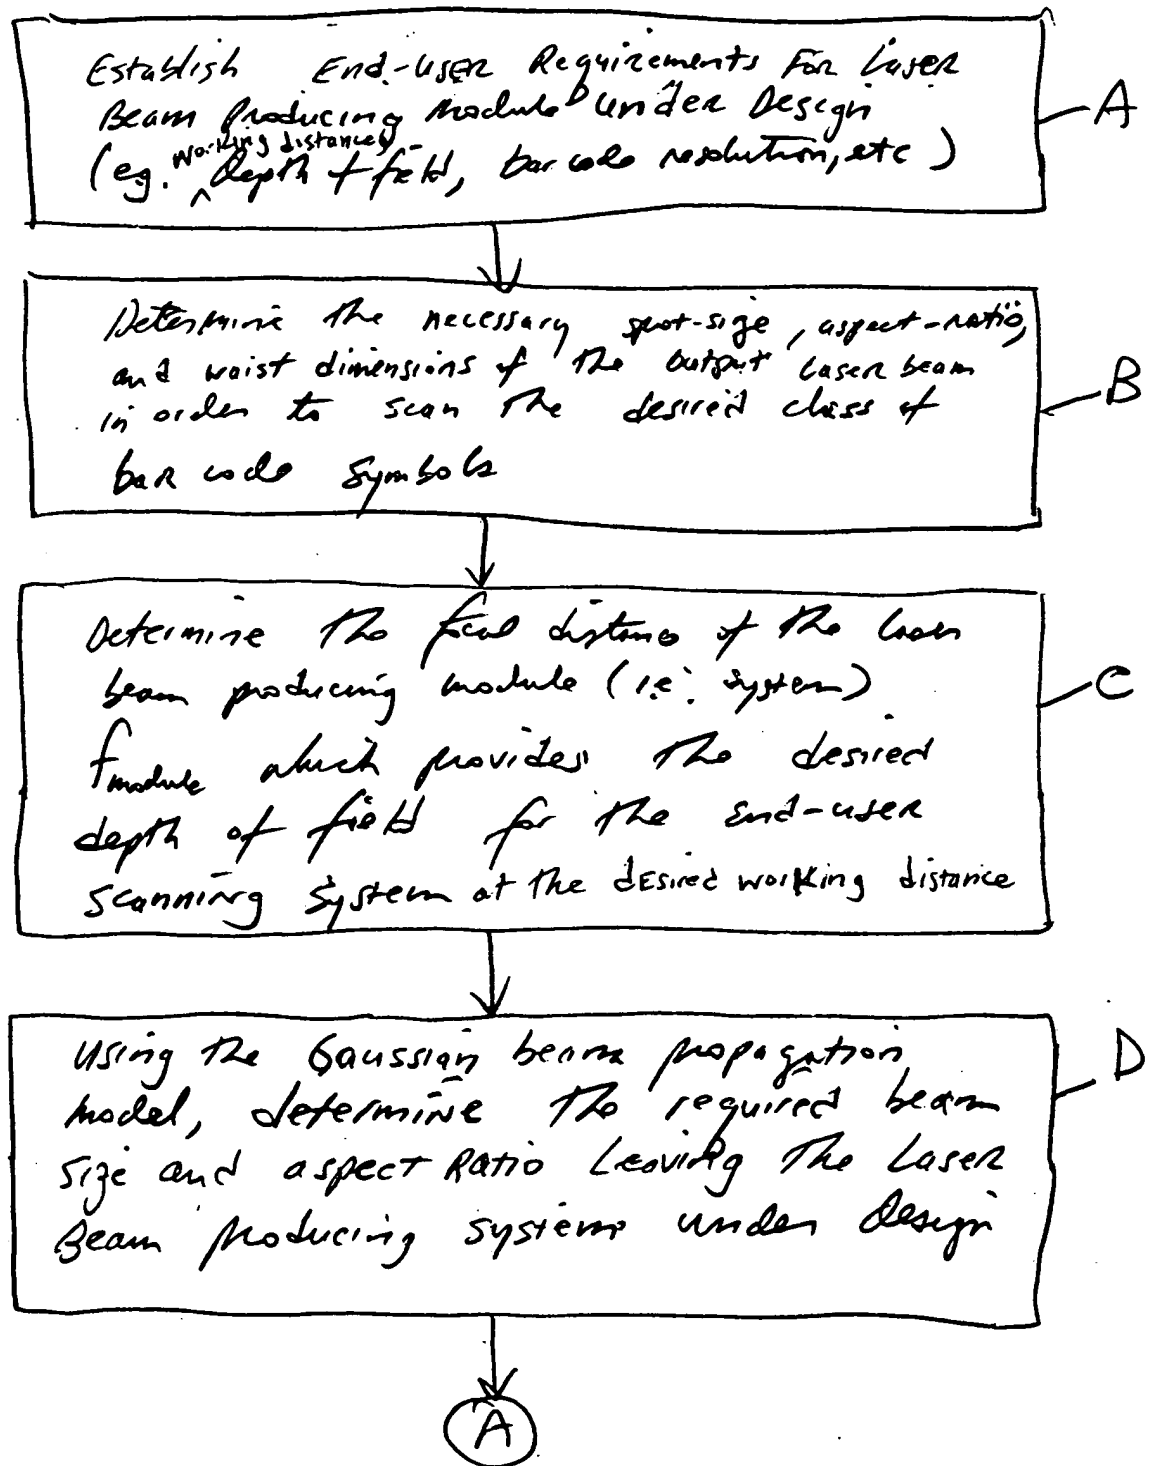 Establish End-user Requirements For Laser
Beam Producing Module Under Design
working distances,
(eg. ^ depth of field, bar code resolution, etc )
A
Determine the necessary spot-size, aspect-ratio,
and waist dimensions of the output laser beam
in order to scan the desired class of
bar code symbols
B
Determine the focal distance of the laser
beam producing module (i.e. system)
fmodule which provides the desired
depth of field for the end-user
scanning system at the desired working distance
C
Using the Gaussian beam propagation
model, determine the required beam
size and aspect Ratio Leaving The Laser
Beam Producing system under design
D
A